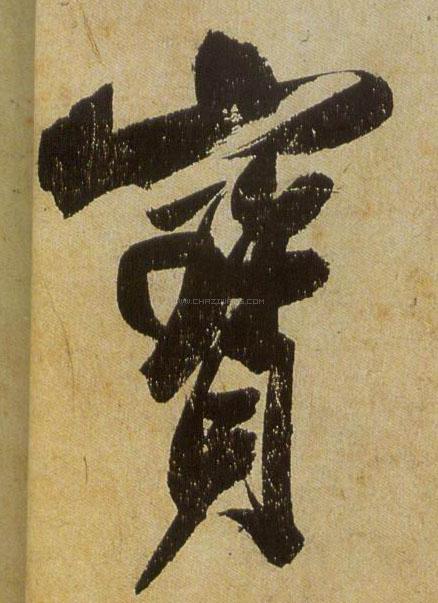 寶
WWW.CHAZIDIAN.COM